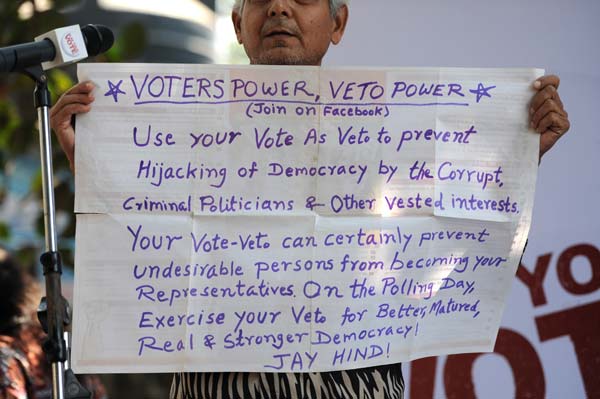 ☆ VOTERS POWER, VETO POWER ☆
(Join on Facebook)
Use your Vote As Veto to prevent
Hijacking of Democracy by the Corrupt,
Criminal Politicians & Other vested interests.
Your Vote-Veto can certainly prevent
undesirable persons from becoming your
Representatives. On the Polling Day,
Exercise your Veto for Better, Matured,
Real & Stronger Democracy!
JAY HIND!
YO
VOT